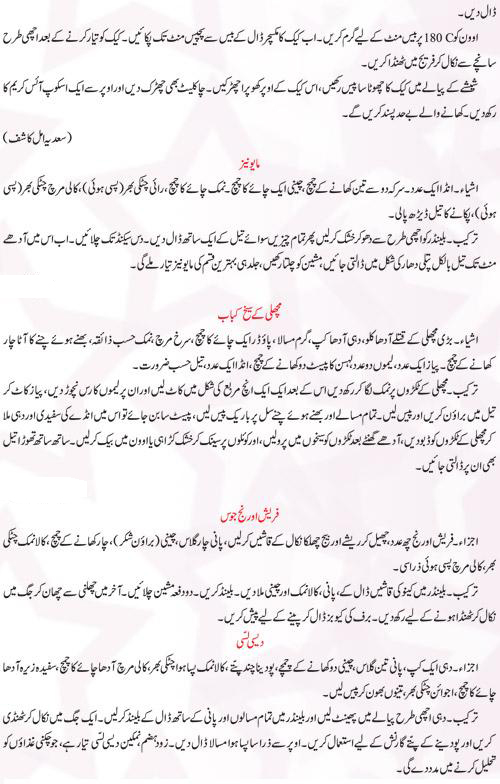 ڈال دیں۔
اوون کو 180 C پر بیس منٹ کے لیے گرم کریں۔ اب کیک کا مکسچر ڈال کے بیس سے پچیس منٹ تک پکائیں۔ کیک کو تیار کرنے کے بعد اچھی طرح
سانچے سے نکال کر فریج میں ٹھنڈا کریں۔
شیشے کے پیالے میں کیک کا چھوٹا سا پیس رکھیں، اس کیک کے اوپر کھوپرا چھڑکیں۔ چاکلیٹ بھی چھڑک دیں اور اوپر سے ایک اسکوپ آئس کریم کا
رکھ دیں۔ کھانے والے بے حد پسند کریں گے۔
(سعدیہ امل کاشف)
مایونیز
اشیاء۔ انڈا ایک عدد۔ سرکہ دو سے تین کھانے کے چمچ، چینی ایک چائے کا چمچ۔ نمک چائے کا چمچ، رائی چٹکی بھر (پسی ہوئی)، کالی مرچ چٹکی بھر (پسی
ہوئی)، پکانے کا تیل ڈیڑھ پیالی۔
ترکیب۔ بلینڈر کو اچھی طرح سے دھو کر خشک کر لیں پھر تمام چیزیں سوائے تیل کے ایک ساتھ ڈال دیں۔ دس سیکنڈ تک چلائیں۔ اب اس میں آدھے
منٹ تک تیل بالکل پتلی دھار کی شکل میں ڈالتی جائیں، مشین کو چلتا رکھیں، جلد ہی بہترین قسم کی مایونیز تیار ملے گی۔
مچھلی کے سیخ کباب
اشیاء۔ بڑی مچھلی کے قتلے آدھا کلو، دہی آدھا کپ، گرم مسالا، پاؤڈر ایک چائے کا چمچ، سرخ مرچ، نمک حسب ذائقہ، بھنے ہوئے چنے کا آٹا چار
کھانے کے چمچ۔ پیاز ایک عدد، لیموں دو عدد، لہسن کا پیسٹ دو کھانے کے چمچ، انڈا ایک عدد، تیل حسب ضرورت۔
ترکیب۔ مچھلی کے ٹکڑوں پر نمک لگا کر رکھ دیں اس کے بعد ایک ایک انچ مربع کی شکل میں کاٹ لیں اور ان پر لیموں کا رس نچوڑ دیں، پیاز کاٹ کر
تیل میں براؤن کریں اور پیس لیں۔ تمام مسالے اور بھنے ہوئے چنے سل پر باریک پیس لیں، پیسٹ سا بن جائے تو اس میں انڈے کی سفیدی اور دہی ملا
کر مچھلی کے ٹکڑوں کو ڈبو دیں، آدھے گھنٹے بعد ٹکڑوں کو سیخوں میں پرو لیں، اور کوئلوں پر سینک کر خشک کڑاہی یا اوون میں بیک کر لیں۔ ساتھ ساتھ تھوڑا تیل
بھی ان پر ڈالتی جائیں۔
فریش اورنج جوس
اجزاء۔ فریش اورنج چھ عدد، چھیل کر ریشے اور بیج چھلکا نکال کے قاشیں کر لیں، پانی چار گلاس، چینی (براؤن شکر)، چار کھانے کے چمچ، کالا نمک چٹکی
بھر، کالی مرچ پسی ہوئی ذرا سی۔
ترکیب۔ بلینڈر میں کینو کی قاشیں ڈال کے، پانی، کالا نمک اور چینی ملا دیں۔ بلینڈ کریں۔ دو دفعہ مشین چلائیں۔ آخر میں چھلنی سے چھان کر جگ میں
نکال کر ٹھنڈا ہونے کے لیے رکھ دیں۔ برف کی کیوبز ڈال کر پینے کے لیے پیش کریں۔
دیسی لسی
اجزاء۔ دہی ایک کپ، پانی تین گلاس، چینی دو کھانے کے چمچے، پودینا چند پتے، کالا نمک پسا ہوا چٹکی بھر، کالی مرچ آدھا چائے کا چمچ، سفید زیرہ آدھا
چائے کا چمچ، اجوائن چٹکی بھر، تینوں بھون کر پیس لیں۔
ترکیب۔ دہی اچھی طرح پیالے میں پھینٹ لیں اور بلینڈر میں تمام مسالوں اور پانی کے ساتھ ڈال کے بلینڈ کر لیں۔ ایک جگ میں نکال کر ٹھنڈی
کریں اور پودینے کے پتے گارنش کے لیے استعمال کریں۔ اوپر سے ذرا سا پسا ہوا مسالا ڈال دیں۔ زود ہضم، نمکین دیسی لسی تیار ہے، جو چکنی غذاؤں کو
تحلیل کرنے میں مدد دے گی۔